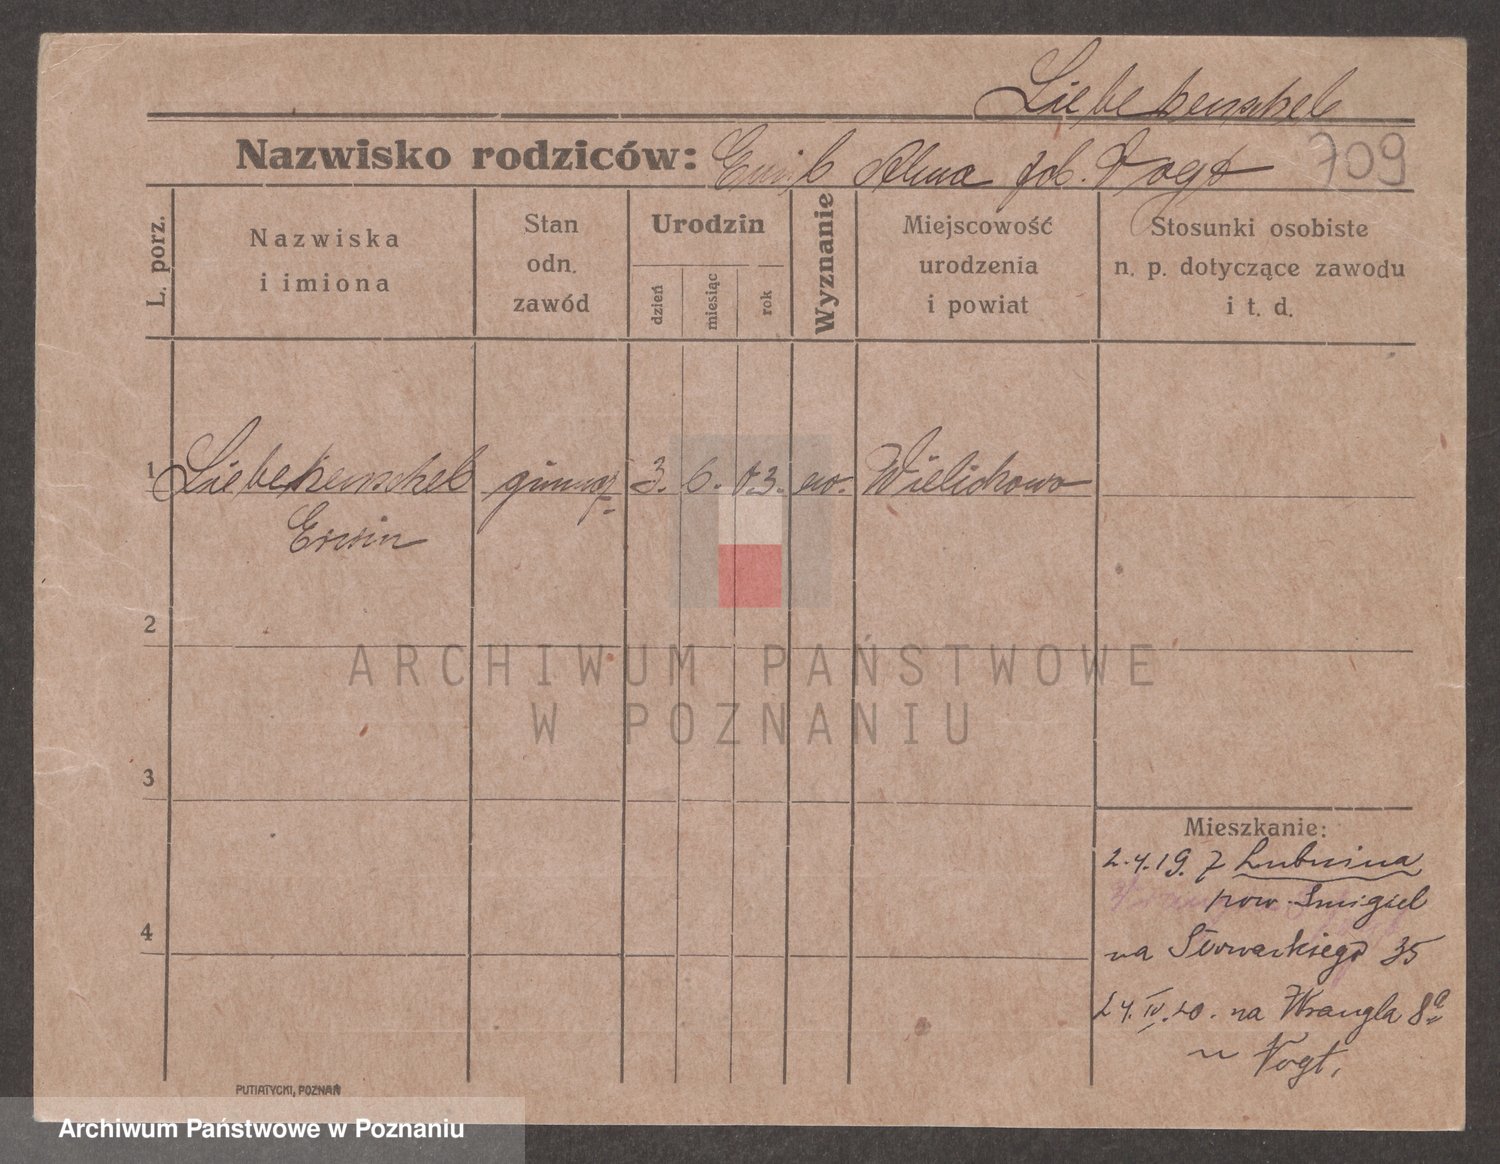 Liebekenschel
Nazwisko rodziców: Emil Alma geb. Vogt 709
L. porz.
Nazwiska
i imiona
Stan
odn.
zawód
Urodzin
dzień
miesiąc
rok
Wyznanie
Miejscowość
urodzenia
i powiat
Stosunki osobiste
n. p. dotyczące zawodu
i t. d.
1 Liebekenschel gimnaz 3. 6. 03. ew. Wielichowo
Erwin
2
ARCHIWUM PAŃSTWOWE
W POZNANIU
3
Mieszkanie:
2.4.19. z Lubnina
pow. Smigiel
4
na Słowackiego 35
24.IV.20. na Wrangla 8a
u Vogt.
PUTIATYCKI, POZNAŃ
Archiwum Państwowe w Poznaniu